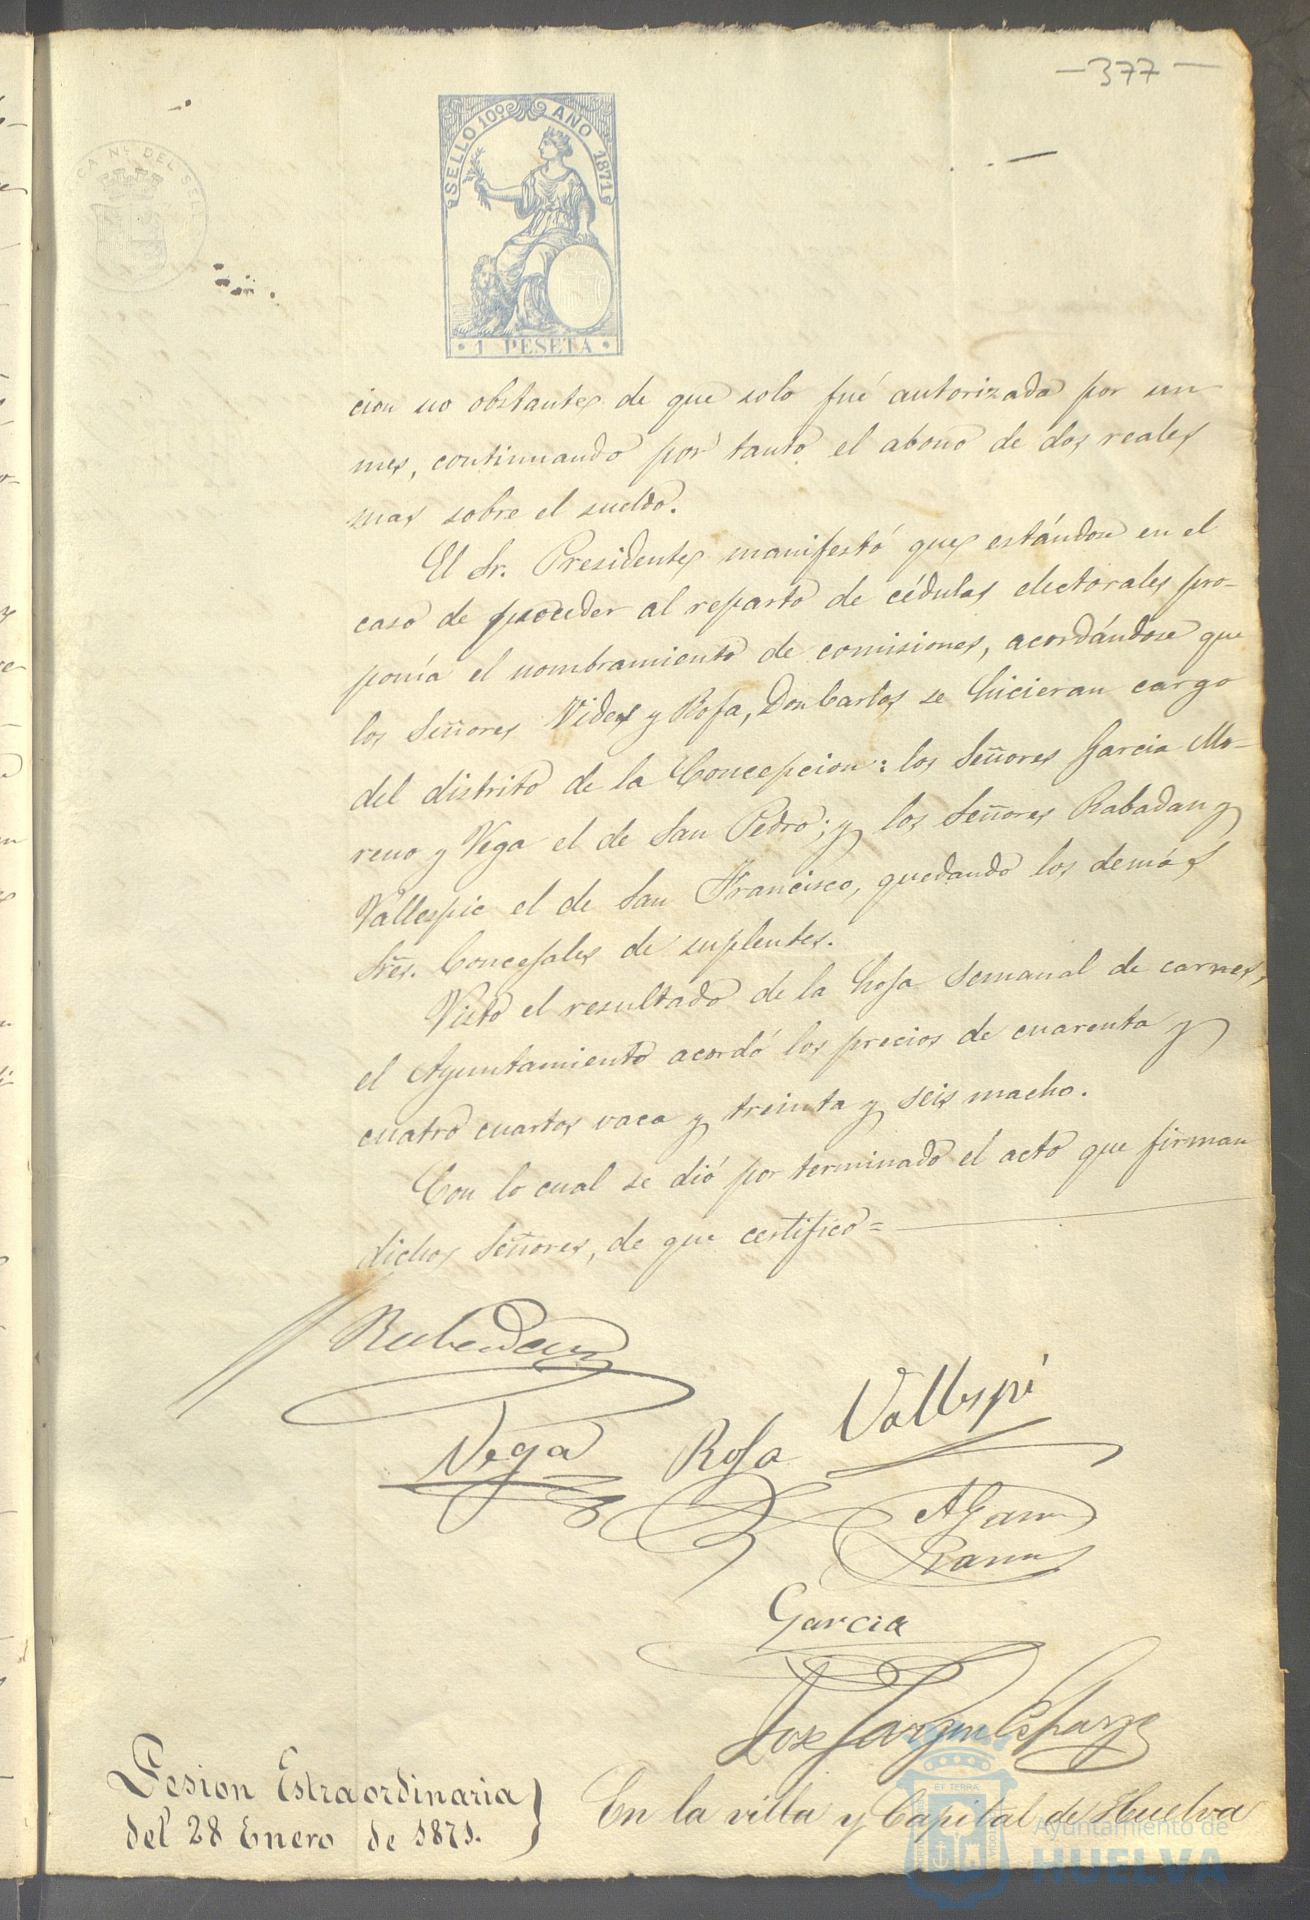 -377-
SELLO 10º AÑO 1871
CA Nl. DEL SELL
· 1 PESETA ·
cion no obstante de que solo fué autorizada por un
mes, continuando por tanto el abono de dos reales
mas sobre el sueldo.
El Sr. Presidente manifestó que estándose en el
caso de proceder al reparto de cédulas electorales pro-
ponía el nombramiento de comisiones, acordándose que
los Señores Vides y Rofa, Don Carlos se hicieran cargo
del distrito de la Concepcion: los Señores Garcia Mo-
reno y Vega el de San Pedro; y los Señores Rabadan y
Vallespie el de San Francisco, quedando los demás
Sres. Concejales de suplentes.
Visto el resultado de la hoja semanal de carnes,
el Ayuntamiento acordó los precios de cuarenta y
cuatro cuartos vaca y treinta y seis macho.
Con lo cual se dió por terminado el acto que firman
dichos Señores, de que certifico=
Rabadan
Vallespi
Vega Rofa
Garcia
Sesion Estraordinaria
del 28 Enero de 1871.
En la villa y Capital de Huelva
Ayuntamiento de
HUELVA